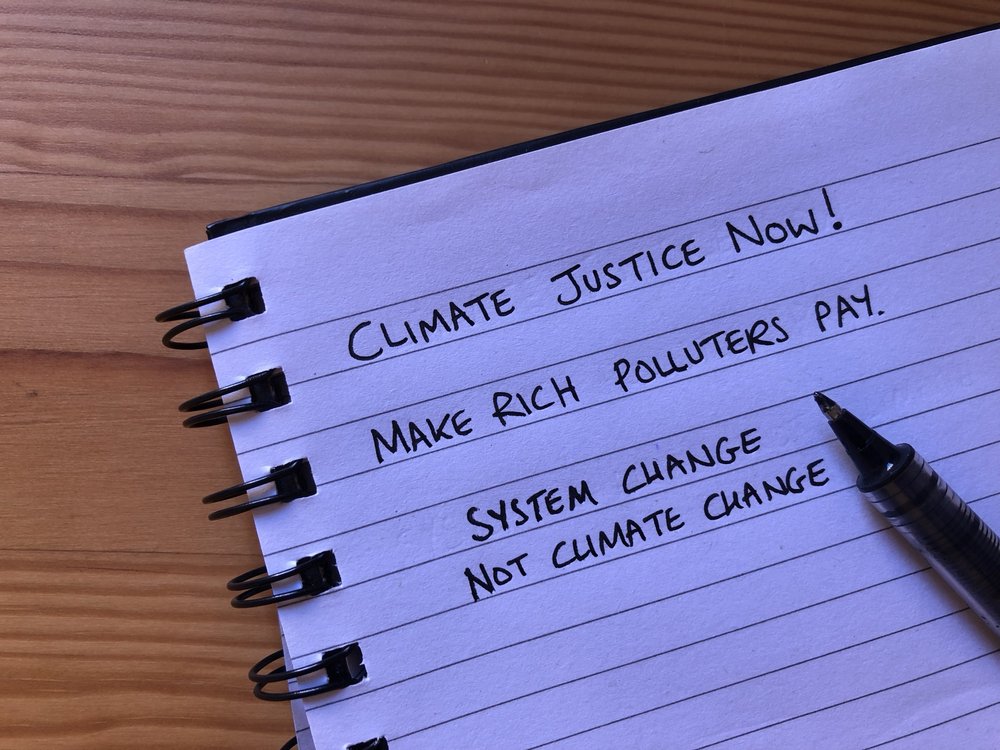 CLIMATE JUSTICE NOW!
MAKE RICH POLLUTERS PAY.
SYSTEM CHANGE
NOT CLIMATE CHANGE